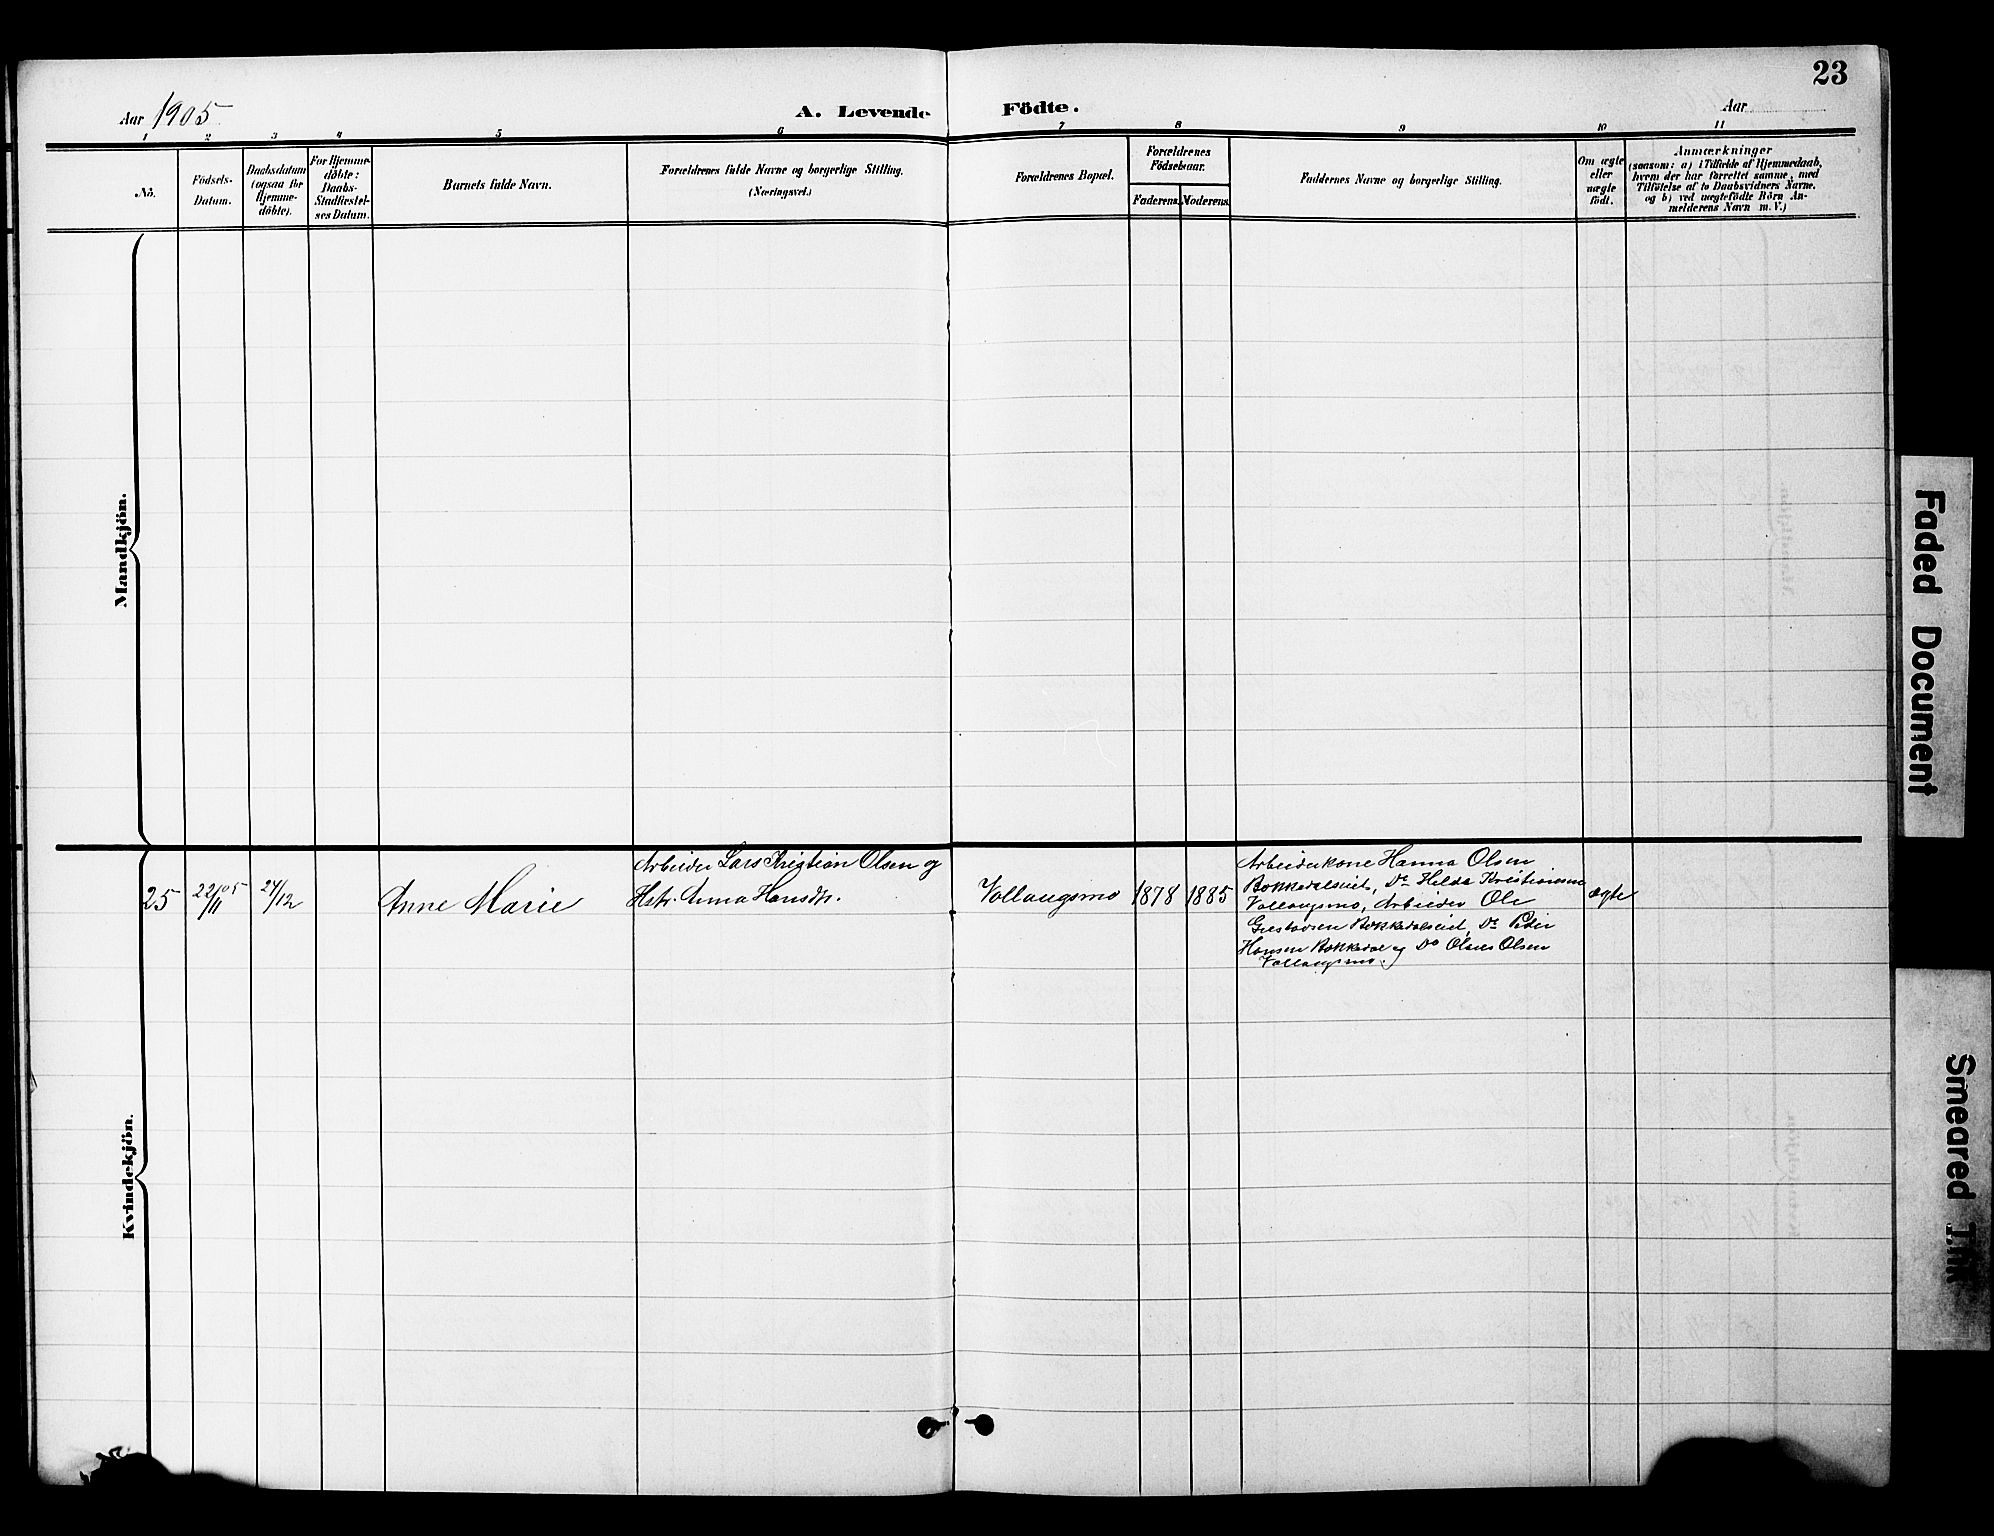 23
Aar 1905
A. Levende Födte.
Aar
1 2 3 4 5 6 7 8 9 10 11
Nö.
Födsels-
Datum.
Daabsdatum
(ogsaa for
Hjemme-
döbte).
For Hjemme-
döbte:
Daabs-
Stadfæstel-
ses Datum.
Barnets fulde Navn.
Forældrenes fulde Navne og borgerlige Stilling.
(Næringsvei.)
Forældrenes Bopæl.
Forældrenes
Födselsaar.
Faderens. Moderens.
Faddernes Navne og borgerlige Stilling.
Om ægte
eller
uægte
födt.
Anmærkninger
(saasom: a) i Tilfælde af Hjemmedaab,
hvem der har forrettet samme, med
Tilföielse af to Daabsvidners Navne,
og b) ved uægtefödte Börn An-
melderens Navn m. V.)
Mandkjön.
Kvindekjön.
25
22/11 05
24/12
Anne Marie
Arbeider Lars Kristian Olsen og
Hstr. Anna Hansdtr.
Vollaugsmo
1878
1885
Arbeiderkone Hanna Olsen
Bokkedalseiet, Do Hilda Kristiansen
Vollaugsmo, Arbeider Ole
Gustavsen Bokkedalseiet, Do Peder
Hansen Bokkedal og Do Olaves Olsen
Vollaugsmo.
ægte
Faded Document
Smeared Ink